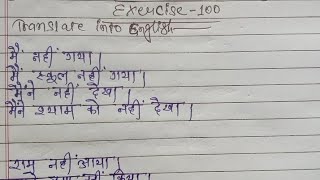 Exercise-100
Translate into English
मैं नहीं गया।
मैं स्कूल नहीं गया।
मैंने नहीं देखा।
मैंने श्याम को नहीं देखा।
रामू नहीं आया।
नहीं किया।